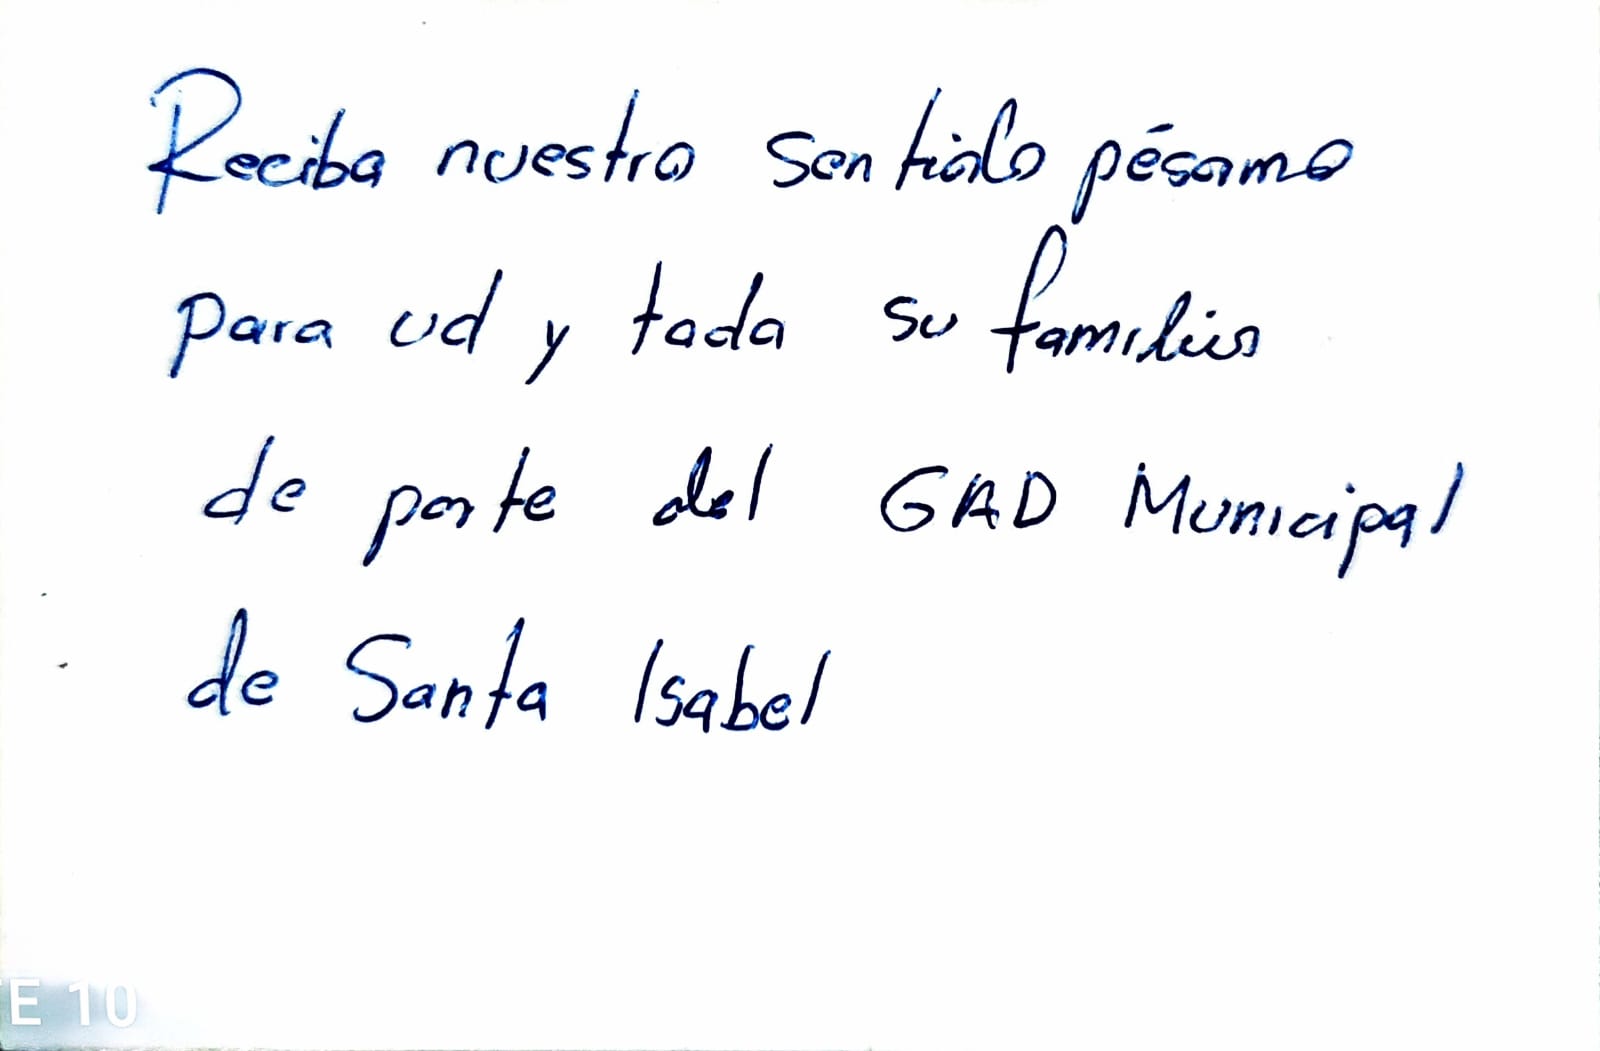 Reciba nuestro sentido pésame
para ud y toda su familia
de parte del GAD Municipal
de Santa Isabel
E 10